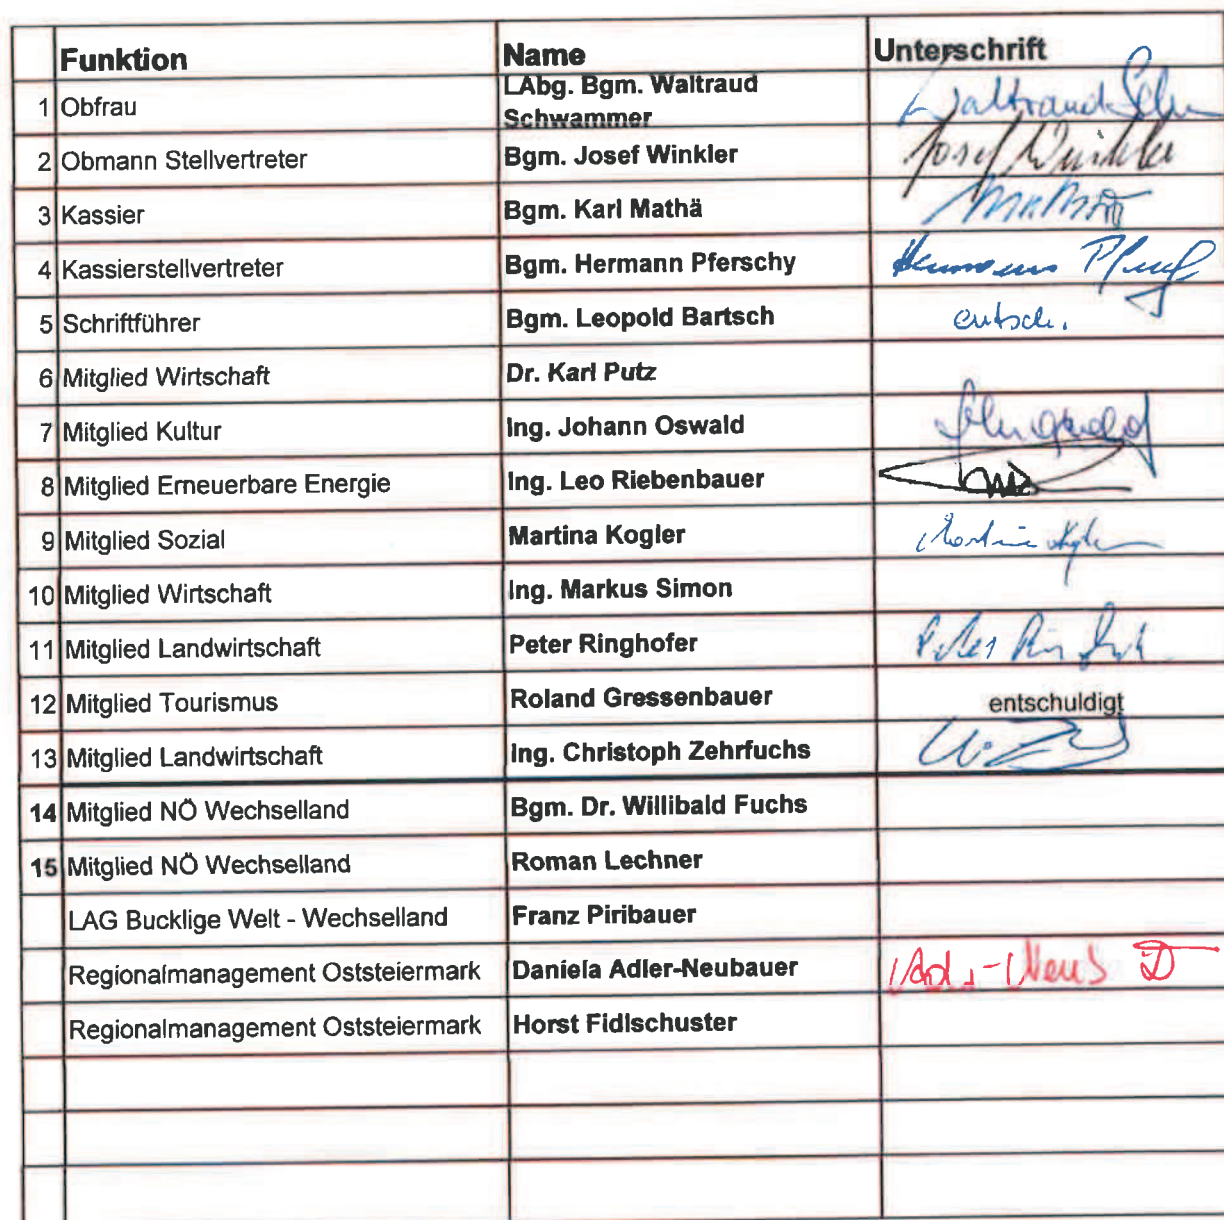 Funktion Name Unterschrift
1 Obfrau LAbg. Bgm. Waltraud Schwammer Waltraud
2 Obmann Stellvertreter Bgm. Josef Winkler Josef Winkler
3 Kassier Bgm. Karl Mathä
4 Kassierstellvertreter Bgm. Hermann Pferschy Hermann
5 Schriftführer Bgm. Leopold Bartsch entsch.
6 Mitglied Wirtschaft Dr. Karl Putz
7 Mitglied Kultur Ing. Johann Oswald
8 Mitglied Erneuerbare Energie Ing. Leo Riebenbauer
9 Mitglied Sozial Martina Kogler
10 Mitglied Wirtschaft Ing. Markus Simon
11 Mitglied Landwirtschaft Peter Ringhofer Peter
12 Mitglied Tourismus Roland Gressenbauer entschuldigt
13 Mitglied Landwirtschaft Ing. Christoph Zehrfuchs
14 Mitglied NÖ Wechselland Bgm. Dr. Willibald Fuchs
15 Mitglied NÖ Wechselland Roman Lechner
LAG Bucklige Welt - Wechselland Franz Piribauer
Regionalmanagement Oststeiermark Daniela Adler-Neubauer
Regionalmanagement Oststeiermark Horst Fidlschuster